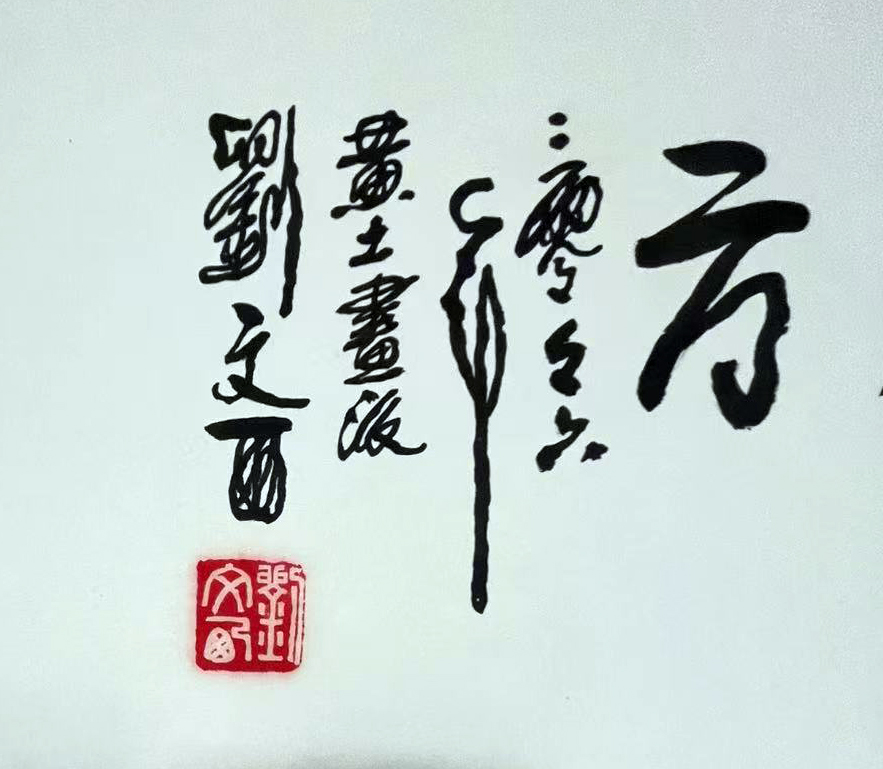 方
二零零六
年
黄土畫派
劉文西
劉文西